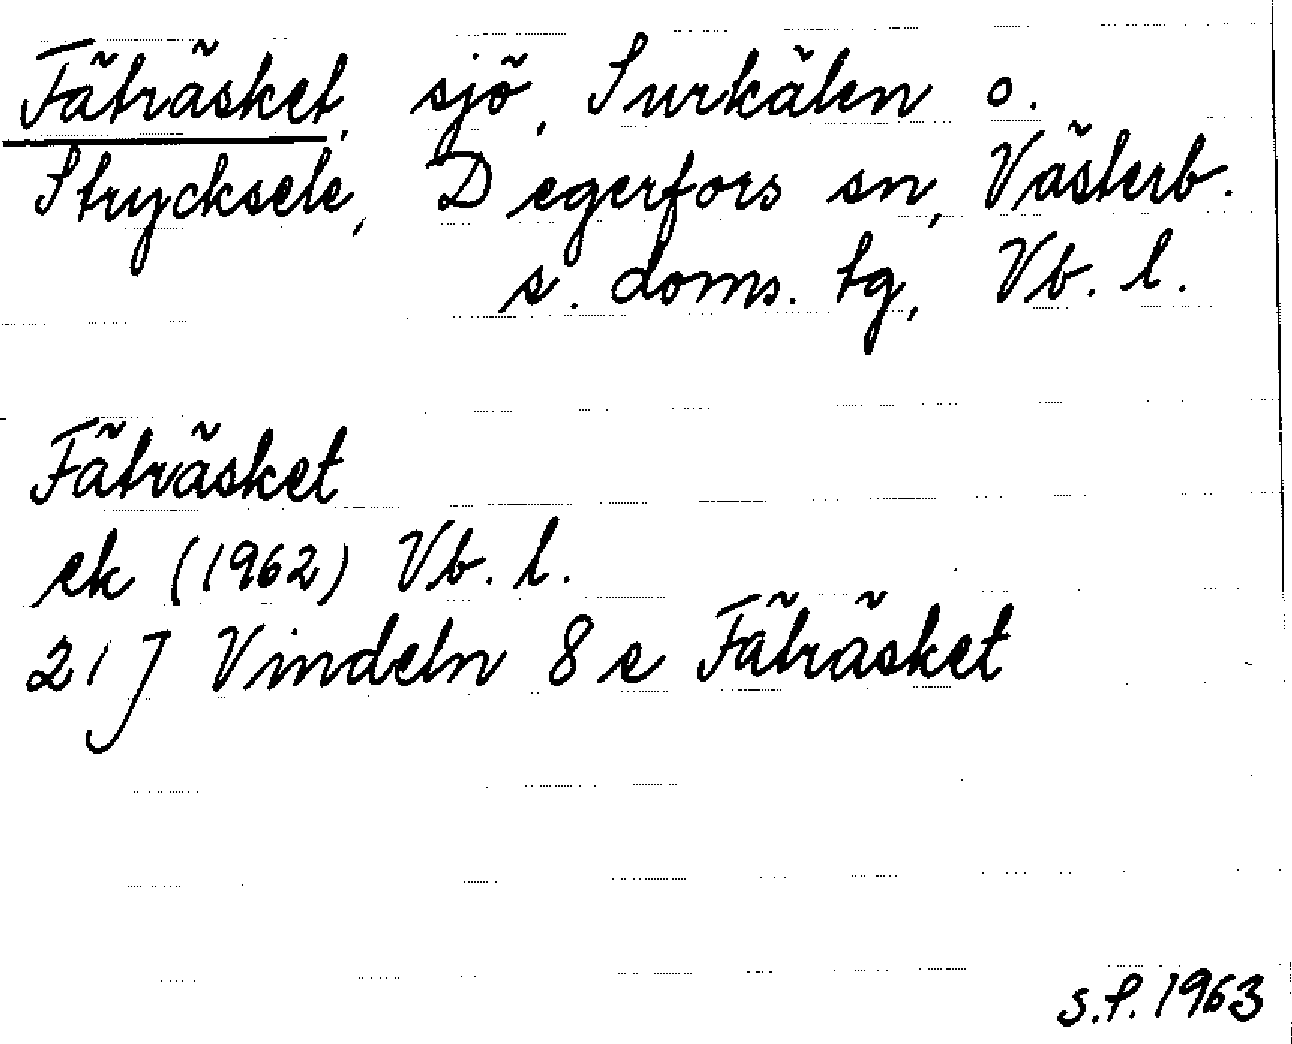 Fäträsket, sjö, Surkälen o.
Strycksele, Degerfors sn, Västerb.
s. doms. tg, Vb. l.
Fäträsket
ek (1962) Vb. l.
21 J Vindeln 8 e Fäträsket
S.P. 1963